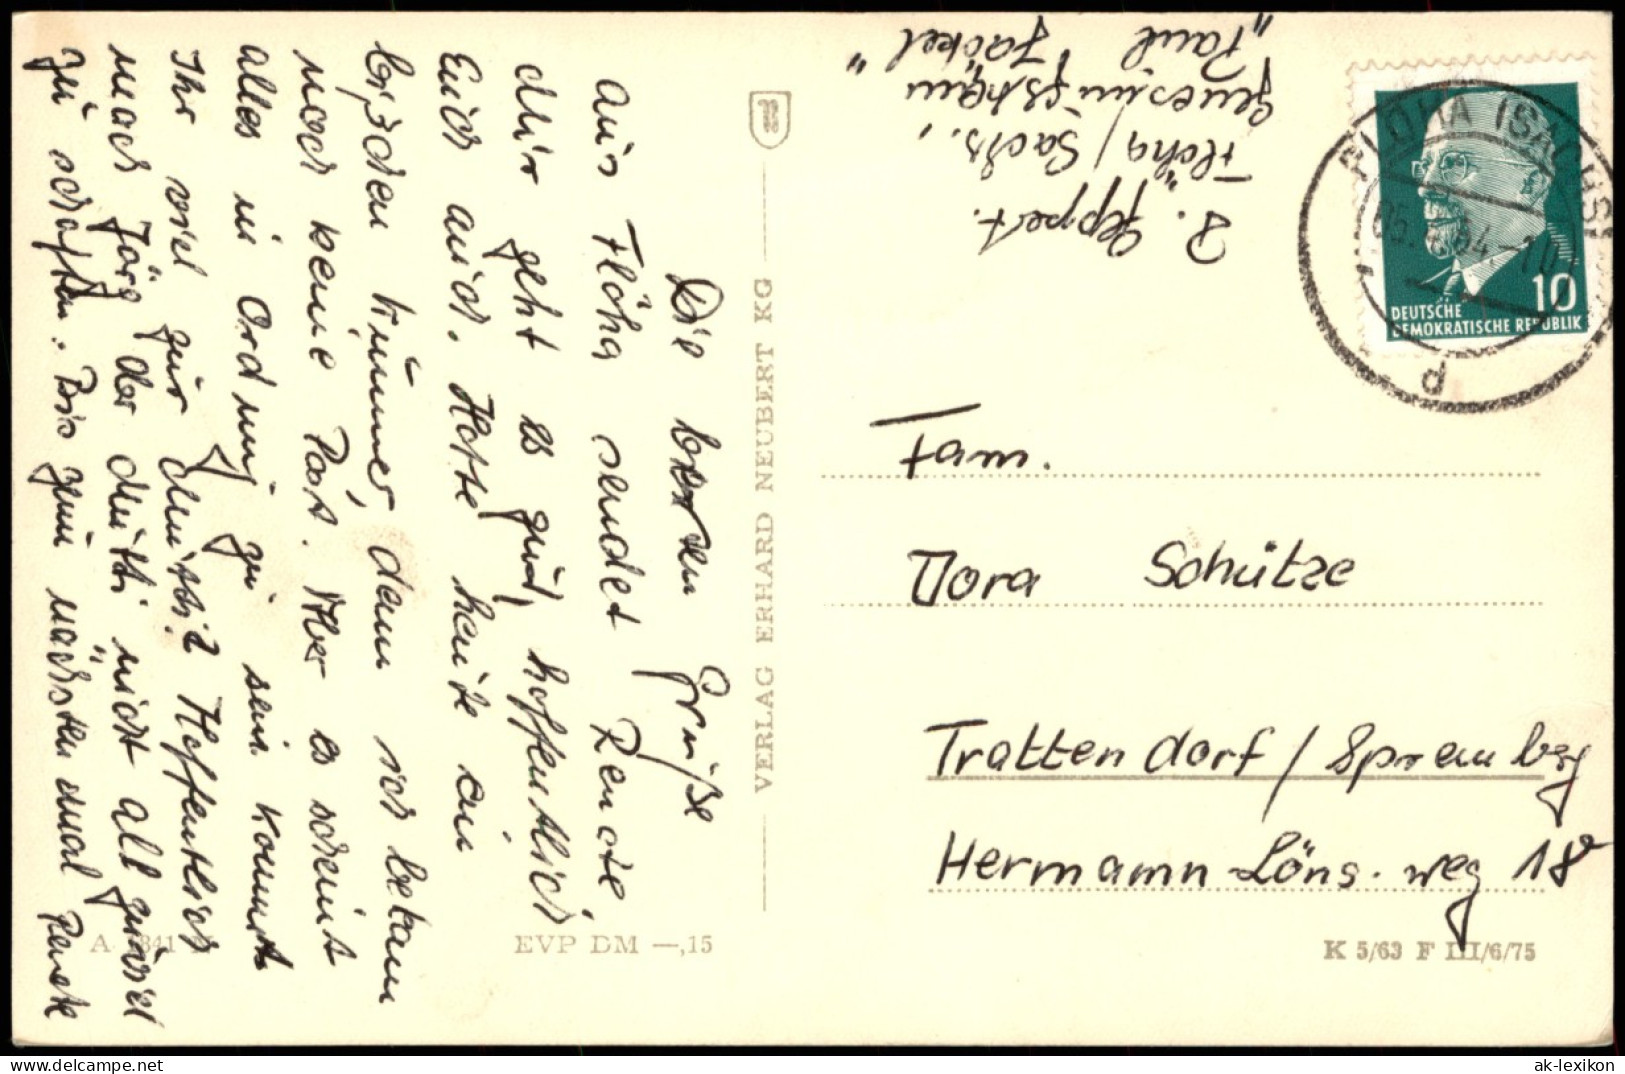 Die besten Grüße
aus Flöha sendet Renate
Mir geht es gut, hoffentlich
Euch auch. Hatte heute ein
bißchen Kummer, denn ich bekam
noch keine Post. Aber es scheint
alles in Ordnung zu sein. Kommt
Ihr viel zur Mutti? Hoffentlich
macht Jörg der Mutti nicht all zuviel
zu schaffen. Bis zum nächsten mal Renate
A 841
EVP DM —,15
VERLAG ERHARD NEUBERT KG
R. Appert.
Flöha/Sachs.,
Genesungsheim
"Paul Jäckel"
FLÖHA (SACHS)
05. 64.-10
d
10
DEUTSCHE
DEMOKRATISCHE REPUBLIK
Fam.
Dora Schütze
Trattendorf/Spremberg
Hermann-Löns-weg 18
K 5/63 F III/6/75
ak-lexikon